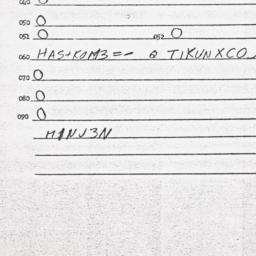 040 0
050 0
051 0 052 0
060 HAS+KOM3=- @ TIKUNXCO
070 0
080 0
090 0
M1NJ3N